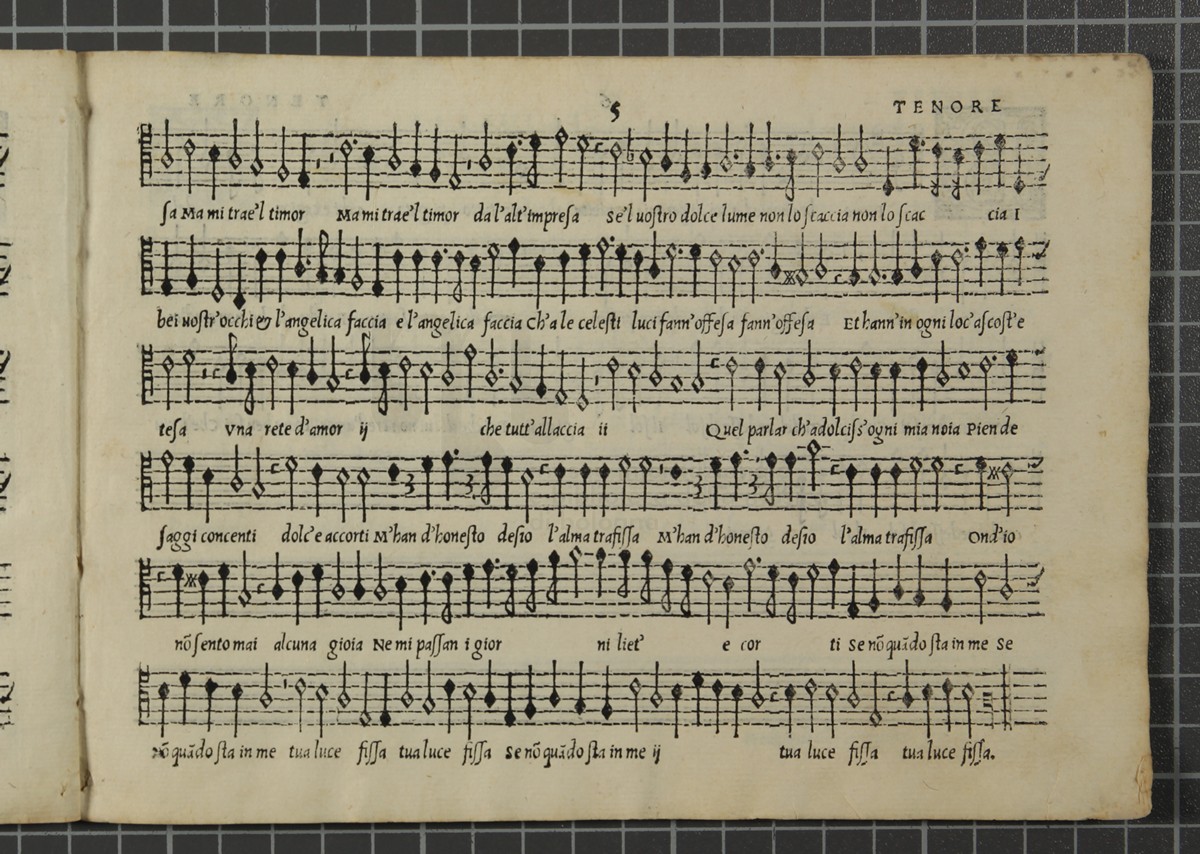 5
TENORE
sa Ma mi trae'l timor Ma mi trae'l timor da l'alt'impresa Se'l uostro dolce lume non lo scaccia non lo scac cia I
bei uostr'occhi & l'angelica faccia e l'angelica faccia Ch'a le celesti luci fann'offesa fann'offesa Et hann'in ogni loc'ascost'e
tesa Vna rete d'amor ij che tutt'allaccia ii Quel parlar ch'adolciss'ogni mia noia Pien de
saggi concenti dolc'e accorti M'han d'honesto desio l'alma trafissa M'han d'honesto desio l'alma trafissa Ond'io
nō sento mai alcuna gioia Ne mi passan i gior ni liet' e cor ti Se nō quādo sta in me Se
nō quādo sta in me tua luce fissa tua luce fissa Se nō quādo sta in me ij tua luce fissa tua luce fissa.